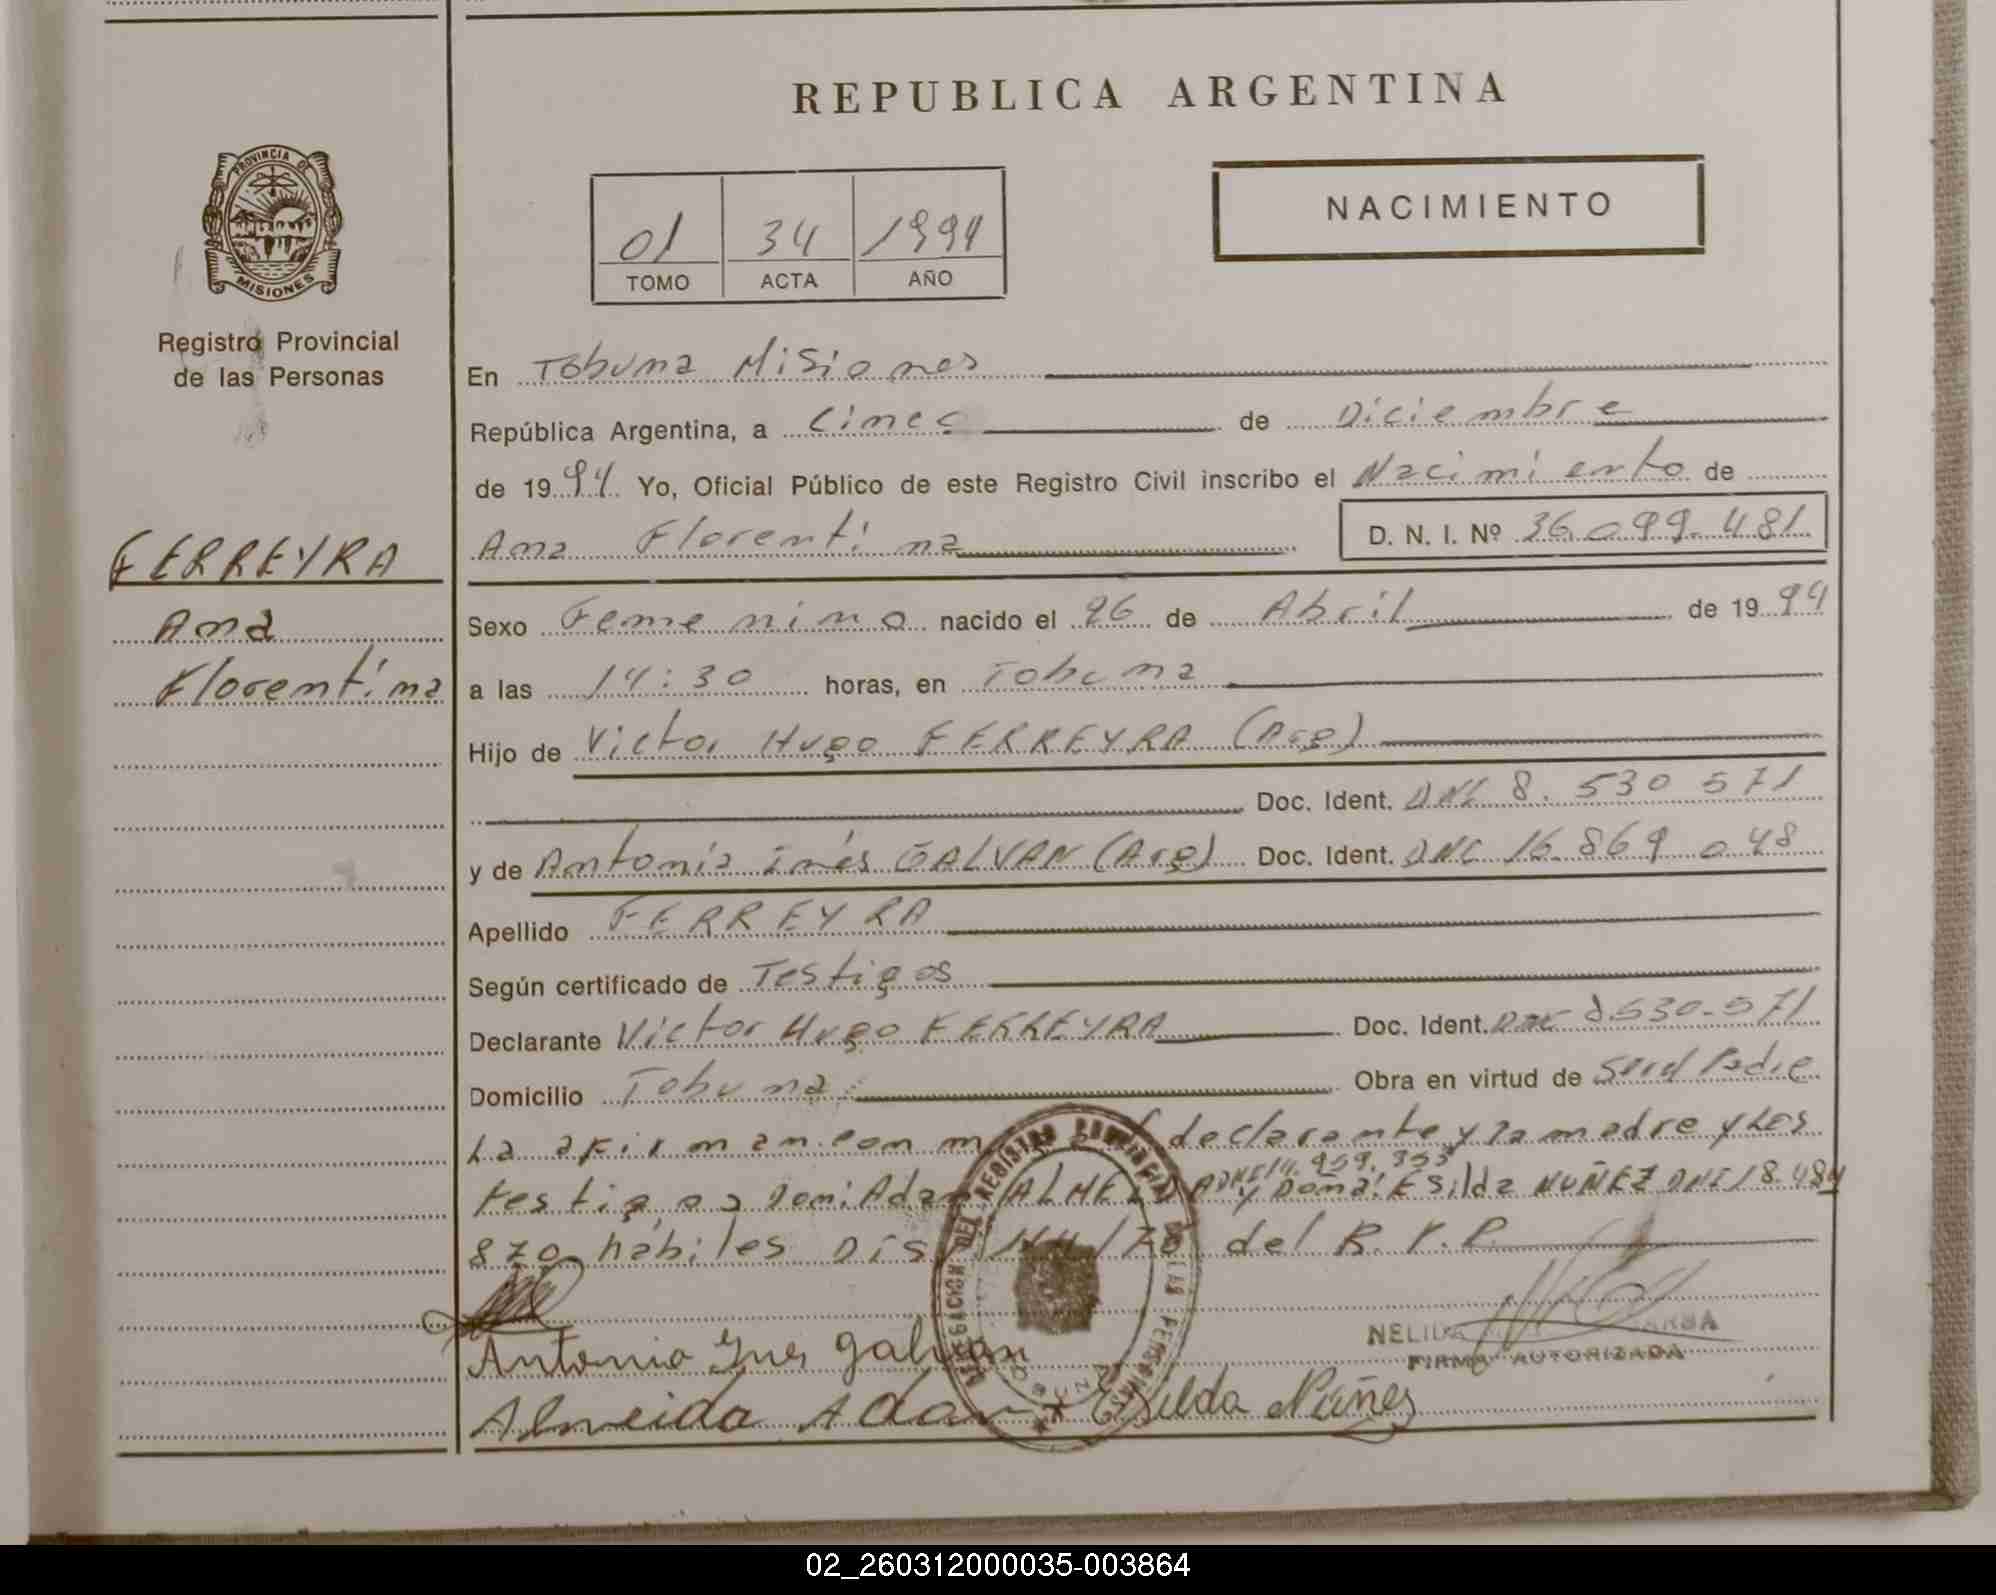 REPUBLICA ARGENTINA
PROVINCIA DE
MISIONES
Registro Provincial
de las Personas
01 34 1994
TOMO ACTA AÑO
NACIMIENTO
En Tobuna Misiones
República Argentina, a Cinco de Diciembre
de 1994 Yo, Oficial Público de este Registro Civil inscribo el Nacimiento de
Ana Florentina D. N. I. Nº 36.099.481
FERREYRA
Ana
Florentina
Sexo Femenino nacido el 26 de Abril de 1994
a las 14:30 horas, en Tobuna
Hijo de Victor Hugo FERREYRA (Arg)
Doc. Ident. DNI 8.530 571
y de Antonia Inés GALVAN (Arg) Doc. Ident. DNI 16.869 048
Apellido FERREYRA
Según certificado de Testigos
Declarante Victor Hugo FERREYRA Doc. Ident. DNI 8.530.571
Domicilio Tobuna Obra en virtud de ser el Padre
La afirman con declarante y la madre y Los
testigos Don: Adan ALMEIDA DNI 14.959.353 y Doña: Esilda NUÑEZ DNI 18.484
870 hábiles DIS 14/78 del R.P.P.
DELEGACION DEL REGISTRO PROVINCIAL DE LAS PERSONAS
TOBUNA
NELIDA
FIRMA AUTORIZADA
Antonia Ynes Galvan
Almeida Adan Esilda Núñez
02_260312000035-003864